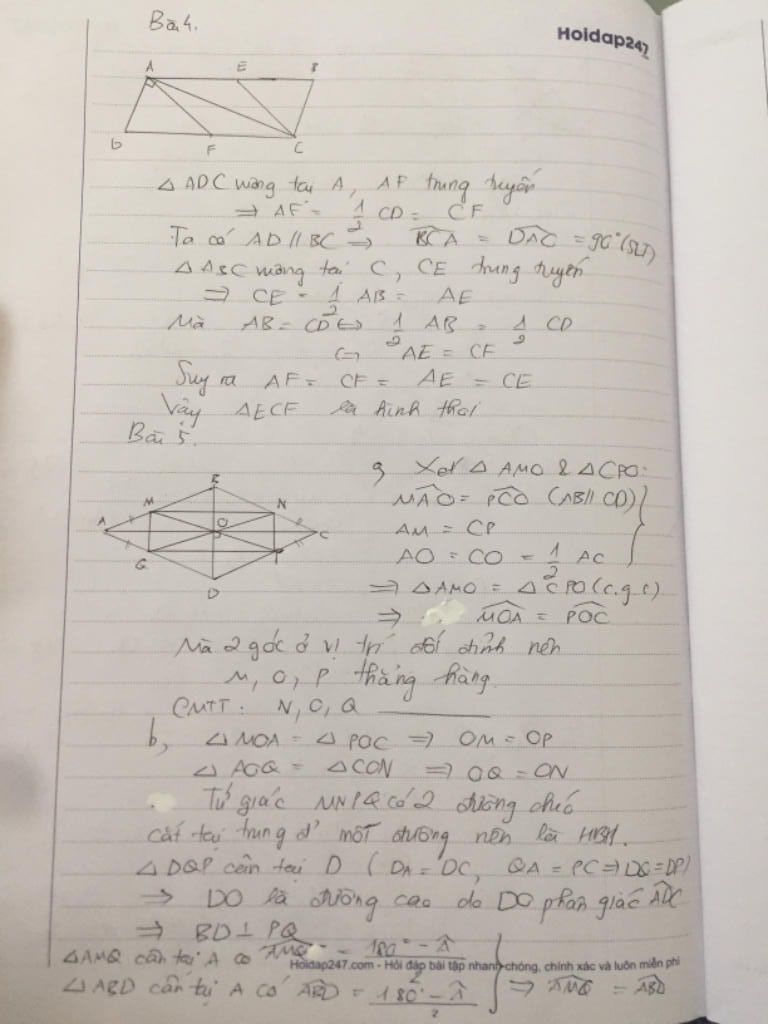 Bài 4.
Hoidap247
A E B
D F C
△ ADC vuông tại A, AF trung tuyến
⇒ AF = 1/2 CD = CF
Ta có AD // BC ⇒ BCA = DAC = 90° (SLT)
△ ABC vuông tại C, CE trung tuyến
⇒ CE = 1/2 AB = AE
Mà AB = CD ⇔ 1/2 AB = 1/2 CD
⇔ AE = CF
Suy ra AF = CF = AE = CE
Vậy AECF là hình thoi
Bài 5.
a, Xét △ AMO & △ CPO:
MAO = PCO (AB // CD)
AM = CP
AO = CO = 1/2 AC
⇒ △ AMO = △ CPO (c.g.c)
⇒ MOA = POC
B
M N
A O C
Q P
D
Mà 2 góc ở vị trí đối đỉnh nên
M, O, P thẳng hàng
CMTT: N, O, Q
b, △ MOA = △ POC ⇒ OM = OP
△ AOQ = △ CON ⇒ OQ = ON
Tứ giác MNPQ có 2 đường chéo
cắt tại trung đ' mỗi đường nên là HBH.
△ DQP cân tại D (DA = DC, QA = PC ⇒ DQ = DP)
⇒ DO là đường cao do DO phân giác ADC
⇒ BD ⊥ PQ
△ AMQ cân tại A có AMQ = 180° - A / 2
Hoidap247.com - Hỏi đáp bài tập nhanh chóng, chính xác và luôn miễn phí
△ ABD cân tại A có ABD = 180° - A / 2 ⇒ AMQ = ABD